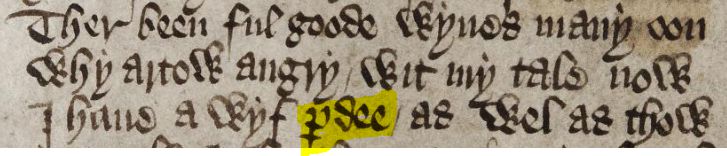 Ther been ful goode wyues many oon
Why artow angry / wit my tale now
I haue a wyf ꝑdee / as wel as thow